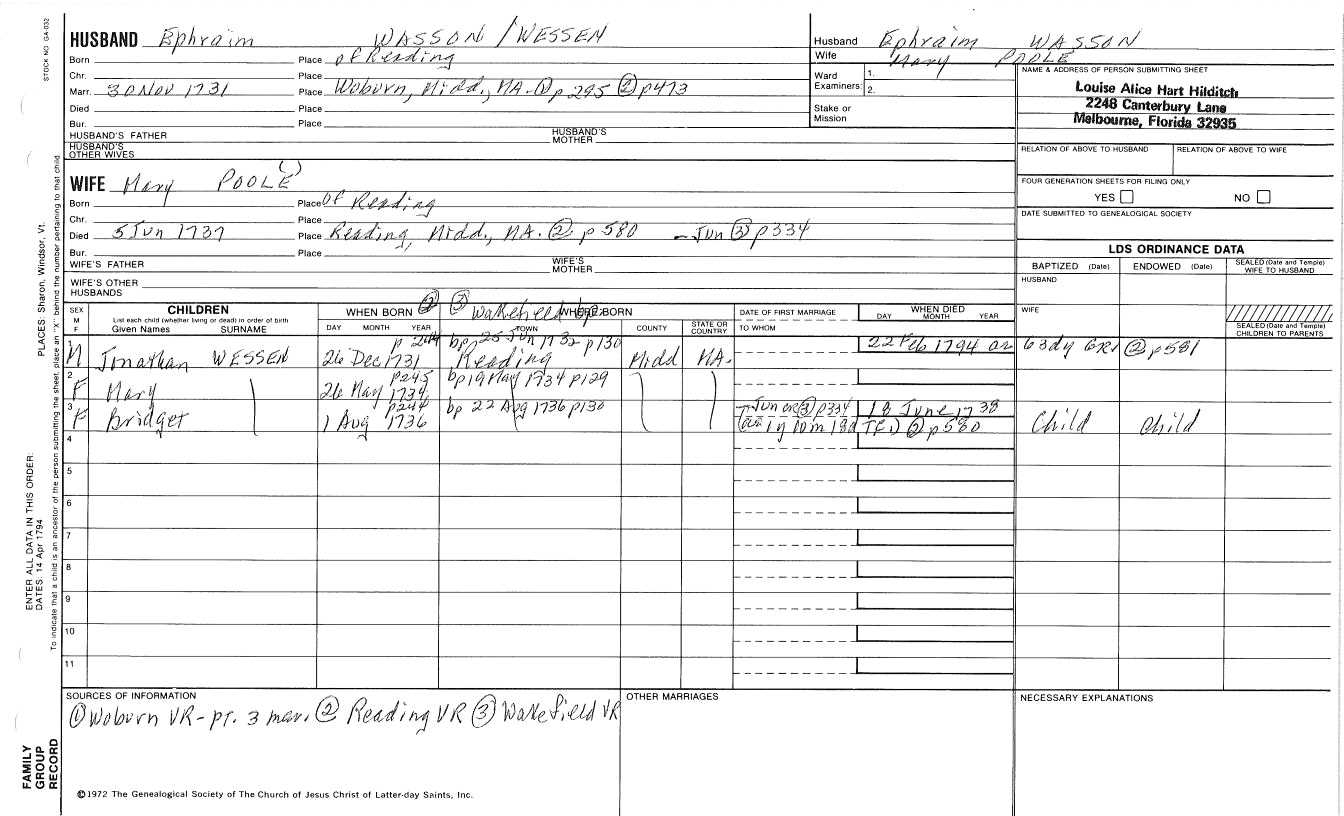 STOCK NO. GA-032
HUSBAND Ephraim WASSON / WESSEN
Born Place of Reading
Chr. Place
Marr. 30 Nov 1731 Place Woburn, Midd., MA. ① p295 ② p473
Died Place
Bur. Place
HUSBAND'S FATHER HUSBAND'S MOTHER
HUSBAND'S OTHER WIVES
WIFE Mary POOLE
Born Place of Reading
Chr. Place
Died 5 Jun 1737 Place Reading, Midd., MA. ② p580 - Jun ③ p334
Bur. Place
WIFE'S FATHER WIFE'S MOTHER
WIFE'S OTHER HUSBANDS
Husband Ephraim WASSON
Wife Mary POOLE
Ward Examiners: 1. 2.
Stake or Mission
NAME & ADDRESS OF PERSON SUBMITTING SHEET
Louise Alice Hart Hilditch
2248 Canterbury Lane
Melbourne, Florida 32935
RELATION OF ABOVE TO HUSBAND RELATION OF ABOVE TO WIFE
FOUR GENERATION SHEETS FOR FILING ONLY
YES NO
DATE SUBMITTED TO GENEALOGICAL SOCIETY
LDS ORDINANCE DATA
BAPTIZED (Date) ENDOWED (Date) SEALED (Date and Temple) WIFE TO HUSBAND
HUSBAND
WIFE
SEALED (Date and Temple) CHILDREN TO PARENTS
SEX M F
CHILDREN
List each child (whether living or dead) in order of birth
Given Names SURNAME
WHEN BORN ② DAY MONTH YEAR
③ Wakefield bp. WHERE BORN TOWN COUNTY STATE OR COUNTRY
DATE OF FIRST MARRIAGE TO WHOM
WHEN DIED DAY MONTH YEAR
1 p 244 bp 25 Jun 1732 p130
M Jonathan WESSEN 26 Dec 1731 Reading Midd MA. 22 Feb 1794 ae 63dy GR1 ② p581
2 p245 bp 19 May 1734 p129
F Mary 26 May 1734
3 p244 bp 22 Aug 1736 p130 Jun ③ p334 18 June 1738
F Bridget 1 Aug 1736 (ae 1y 10m 18d ② p580 Child Child
4
5
6
7
8
9
10
11
SOURCES OF INFORMATION
① Woburn VR - pt. 3 mar. ② Reading VR ③ Wakefield VR
OTHER MARRIAGES
NECESSARY EXPLANATIONS
©1972 The Genealogical Society of The Church of Jesus Christ of Latter-day Saints, Inc.
FAMILY GROUP RECORD
ENTER ALL DATA IN THIS ORDER:
DATES: 14 Apr 1794
PLACES: Sharon, Windsor, Vt.
To indicate that a child is an ancestor of the person submitting the sheet, place an "X" behind the number pertaining to that child.